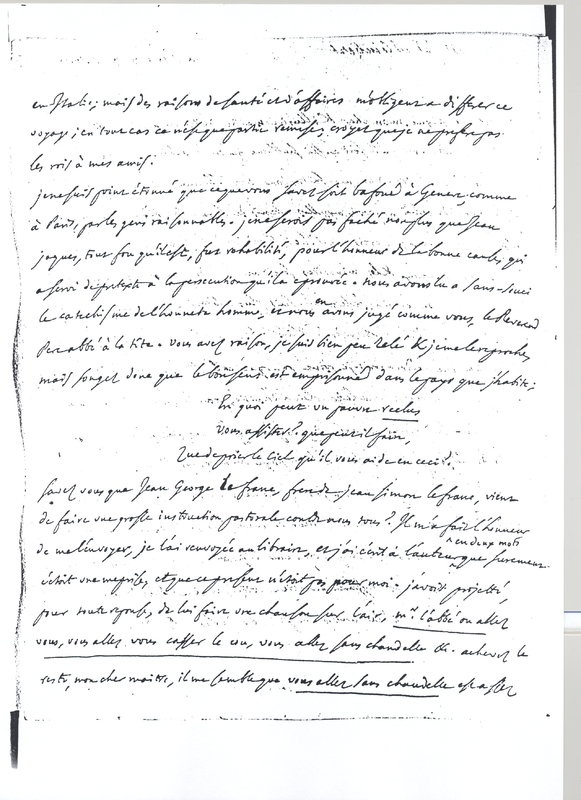 en Italie; mais des raisons de santé et d'affaires m'obligent a differer ce
voyage; en tout cas ce n'est que partie remise; croyez que je ne prefere pas
les rois à mes amis.
je ne suis point étonné que ce que vous savez soit bafoué à Geneve comme
à Paris, par les gens raisonnables. je ne serois pas faché non plus que Jean
jaques, tout fou qu'il est, fut rehabilité, pour l'honneur de la bonne cause, qui
a servi de pretexte à la persecution qu'il a eprouvée. nous avons lu a Sans-Souci
le catechisme de l'honnete homme, et nous en avons jugé comme vous, le Reverend
Pere abbé à la tête. vous avez raison, je suis bien peu zelé & je me le reproche,
mais songez donc que le bon sens est emprisonné dans le pays que j'habite;
En quoi peut un pauvre reclus
vous assister? que peut il faire,
Que de prier le Ciel qu'il vous aide en ceci?
savez vous que Jean George le franc, frere de jean simon le franc, vient
de faire une grosse instruction pastorale contre nous tous? Il m'a fait l'honneur
de me l'envoyer, je l'ai renvoyée au libraire, et j'ai écrit à l'auteur en deux mots que surement
c'étoit une meprise, et que ce present n'étoit pas pour moi. j'avois projetté,
pour toute reponse, de lui faire une chanson sur l'air, mr. l'abbé ou allez
vous, vous allez vous casser le cou, vous allez sans chandelle &c. achevez le
reste, mon cher maitre, il me semble que vous allez sans chandelle est assez